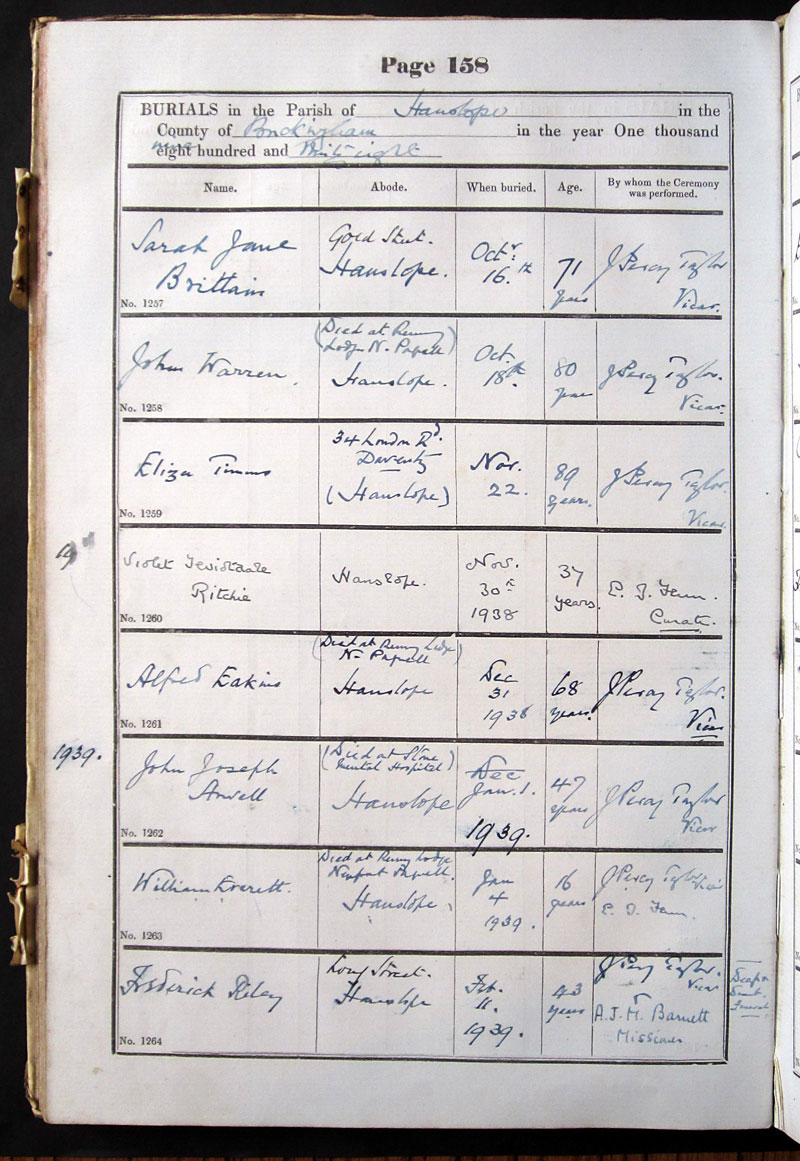 Page 158
BURIALS in the Parish of Hanslope in the
County of Buckingham in the year One thousand
nine
eight hundred and thirty eight
Name. Abode. When buried. Age. By whom the Ceremony was performed.
Sarah Jane
Brittain
No. 1257
Gold Street.
Hanslope.
Octr.
16.th
71
years
J Percy Taylor
Vicar.
John Warren.
No. 1258
(Died at Renny
Lodge N. Pagnell)
Hanslope.
Oct.
18th.
80
years
J Percy Taylor.
Vicar.
Eliza Timms
No. 1259
34 London Rd.
Daventry
(Hanslope)
Nov.
22.
89
years.
J Percy Taylor.
Vicar.
Violet Teviotdale
Ritchie
No. 1260
Hanslope.
Nov.
30th
1938
37
years.
E. J. Fenn.
Curate.
Alfred Eakins
No. 1261
(Died at Renny Lodge
N. Pagnell)
Hanslope
Dec
31
1938
68
years.
J Percy Taylor.
Vicar
1939.
John Joseph
No. 1262
(Died at Stone
Mental Hospital)
Hanslope
Dec
Jan. 1.
1939.
47
years
J Percy Taylor
Vicar
William Everett.
No. 1263
Died at Renny Lodge
Newport Pagnell.
Hanslope,
Jan
4
1939.
16
years
J Percy Taylor Vicar
E. J. Fenn.
Frederick Riley
No. 1264
Long Street.
Hanslope
Feb.
11.
1939.
43
years
J Percy Taylor.
Vicar
A. J. M. Barnett
Missioner
Deaf &
Dumb
Funeral